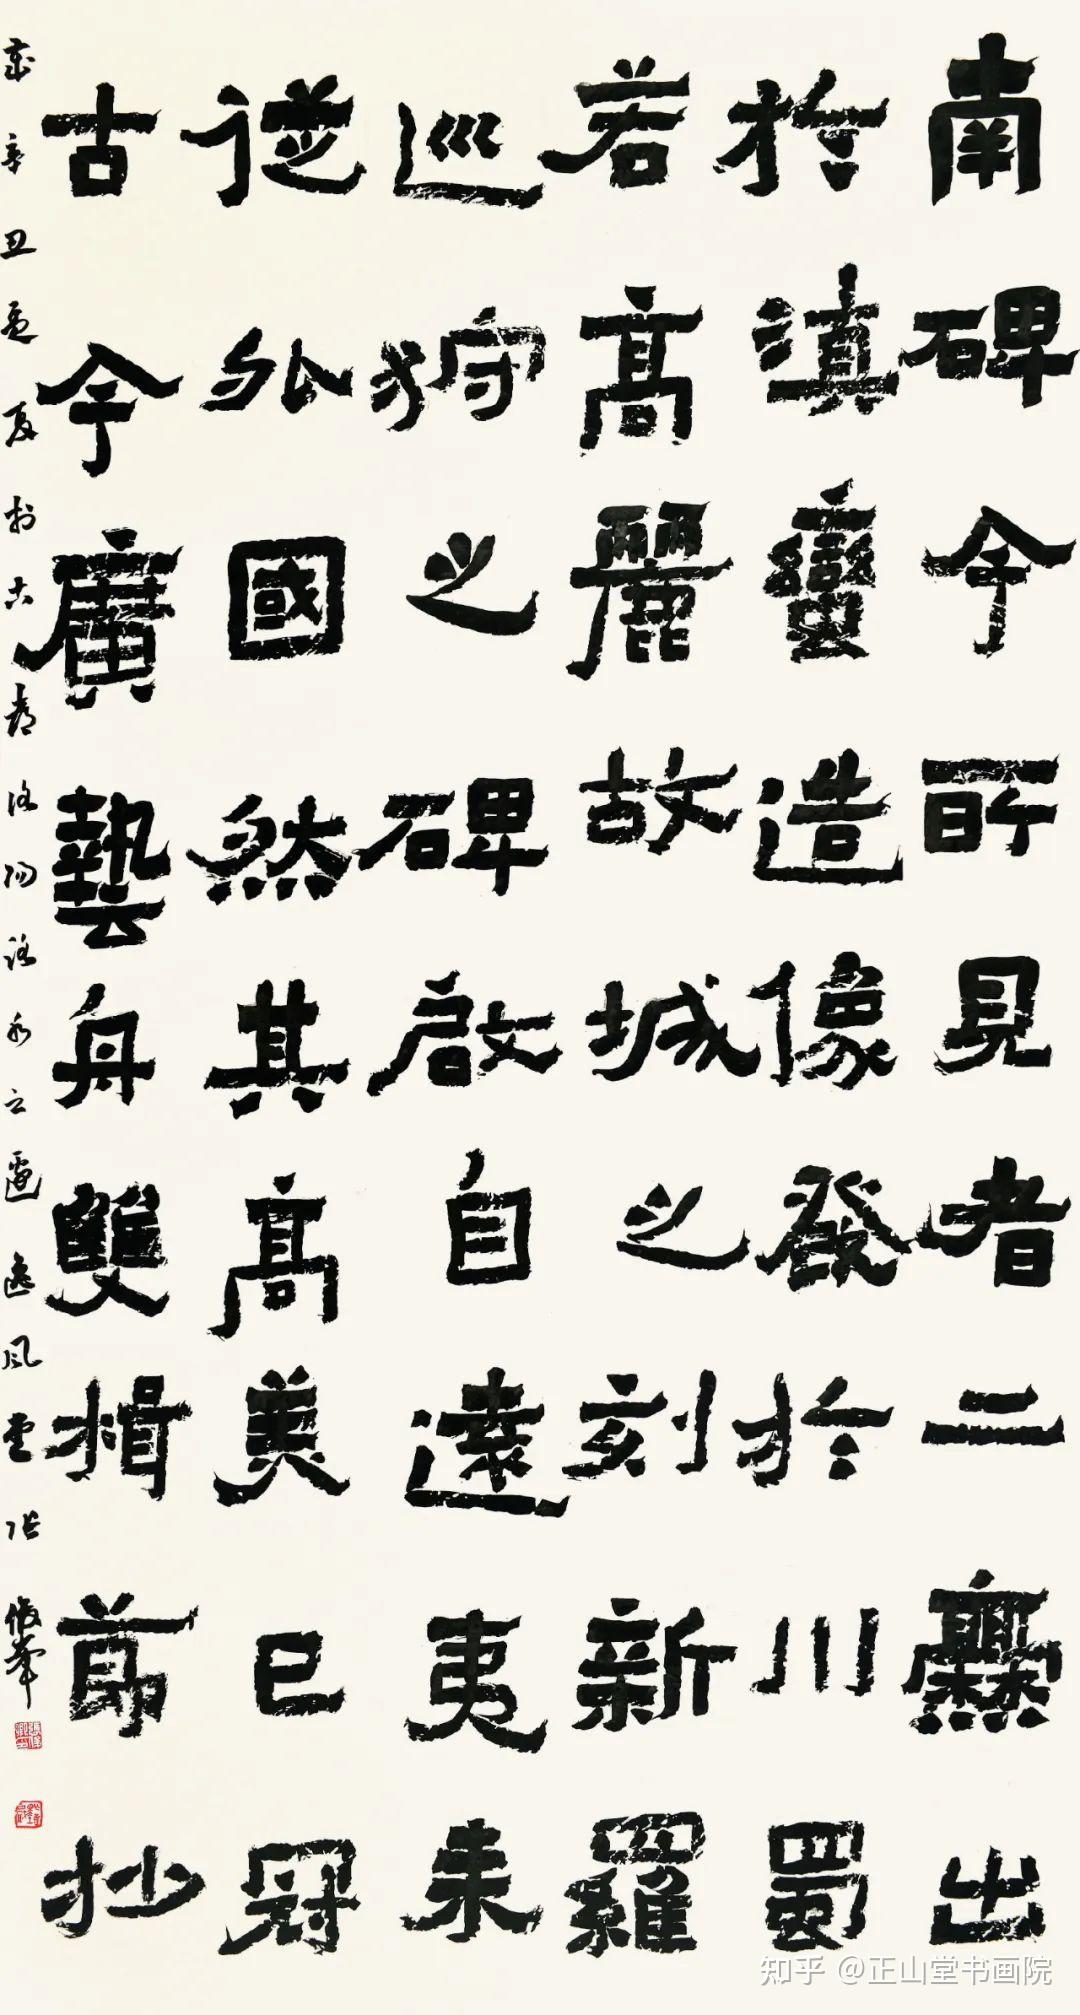 南碑今所見者二爨出
於滇蠻造像發於川蜀
若高麗故城之刻新羅
巡狩之碑啟自遠夷來
從外國然其高美已冠
古今廣藝舟雙楫節抄
歲辛丑孟夏於古都洛陽洛水之邊逸風堂張俊峯
知乎 @正山堂书画院